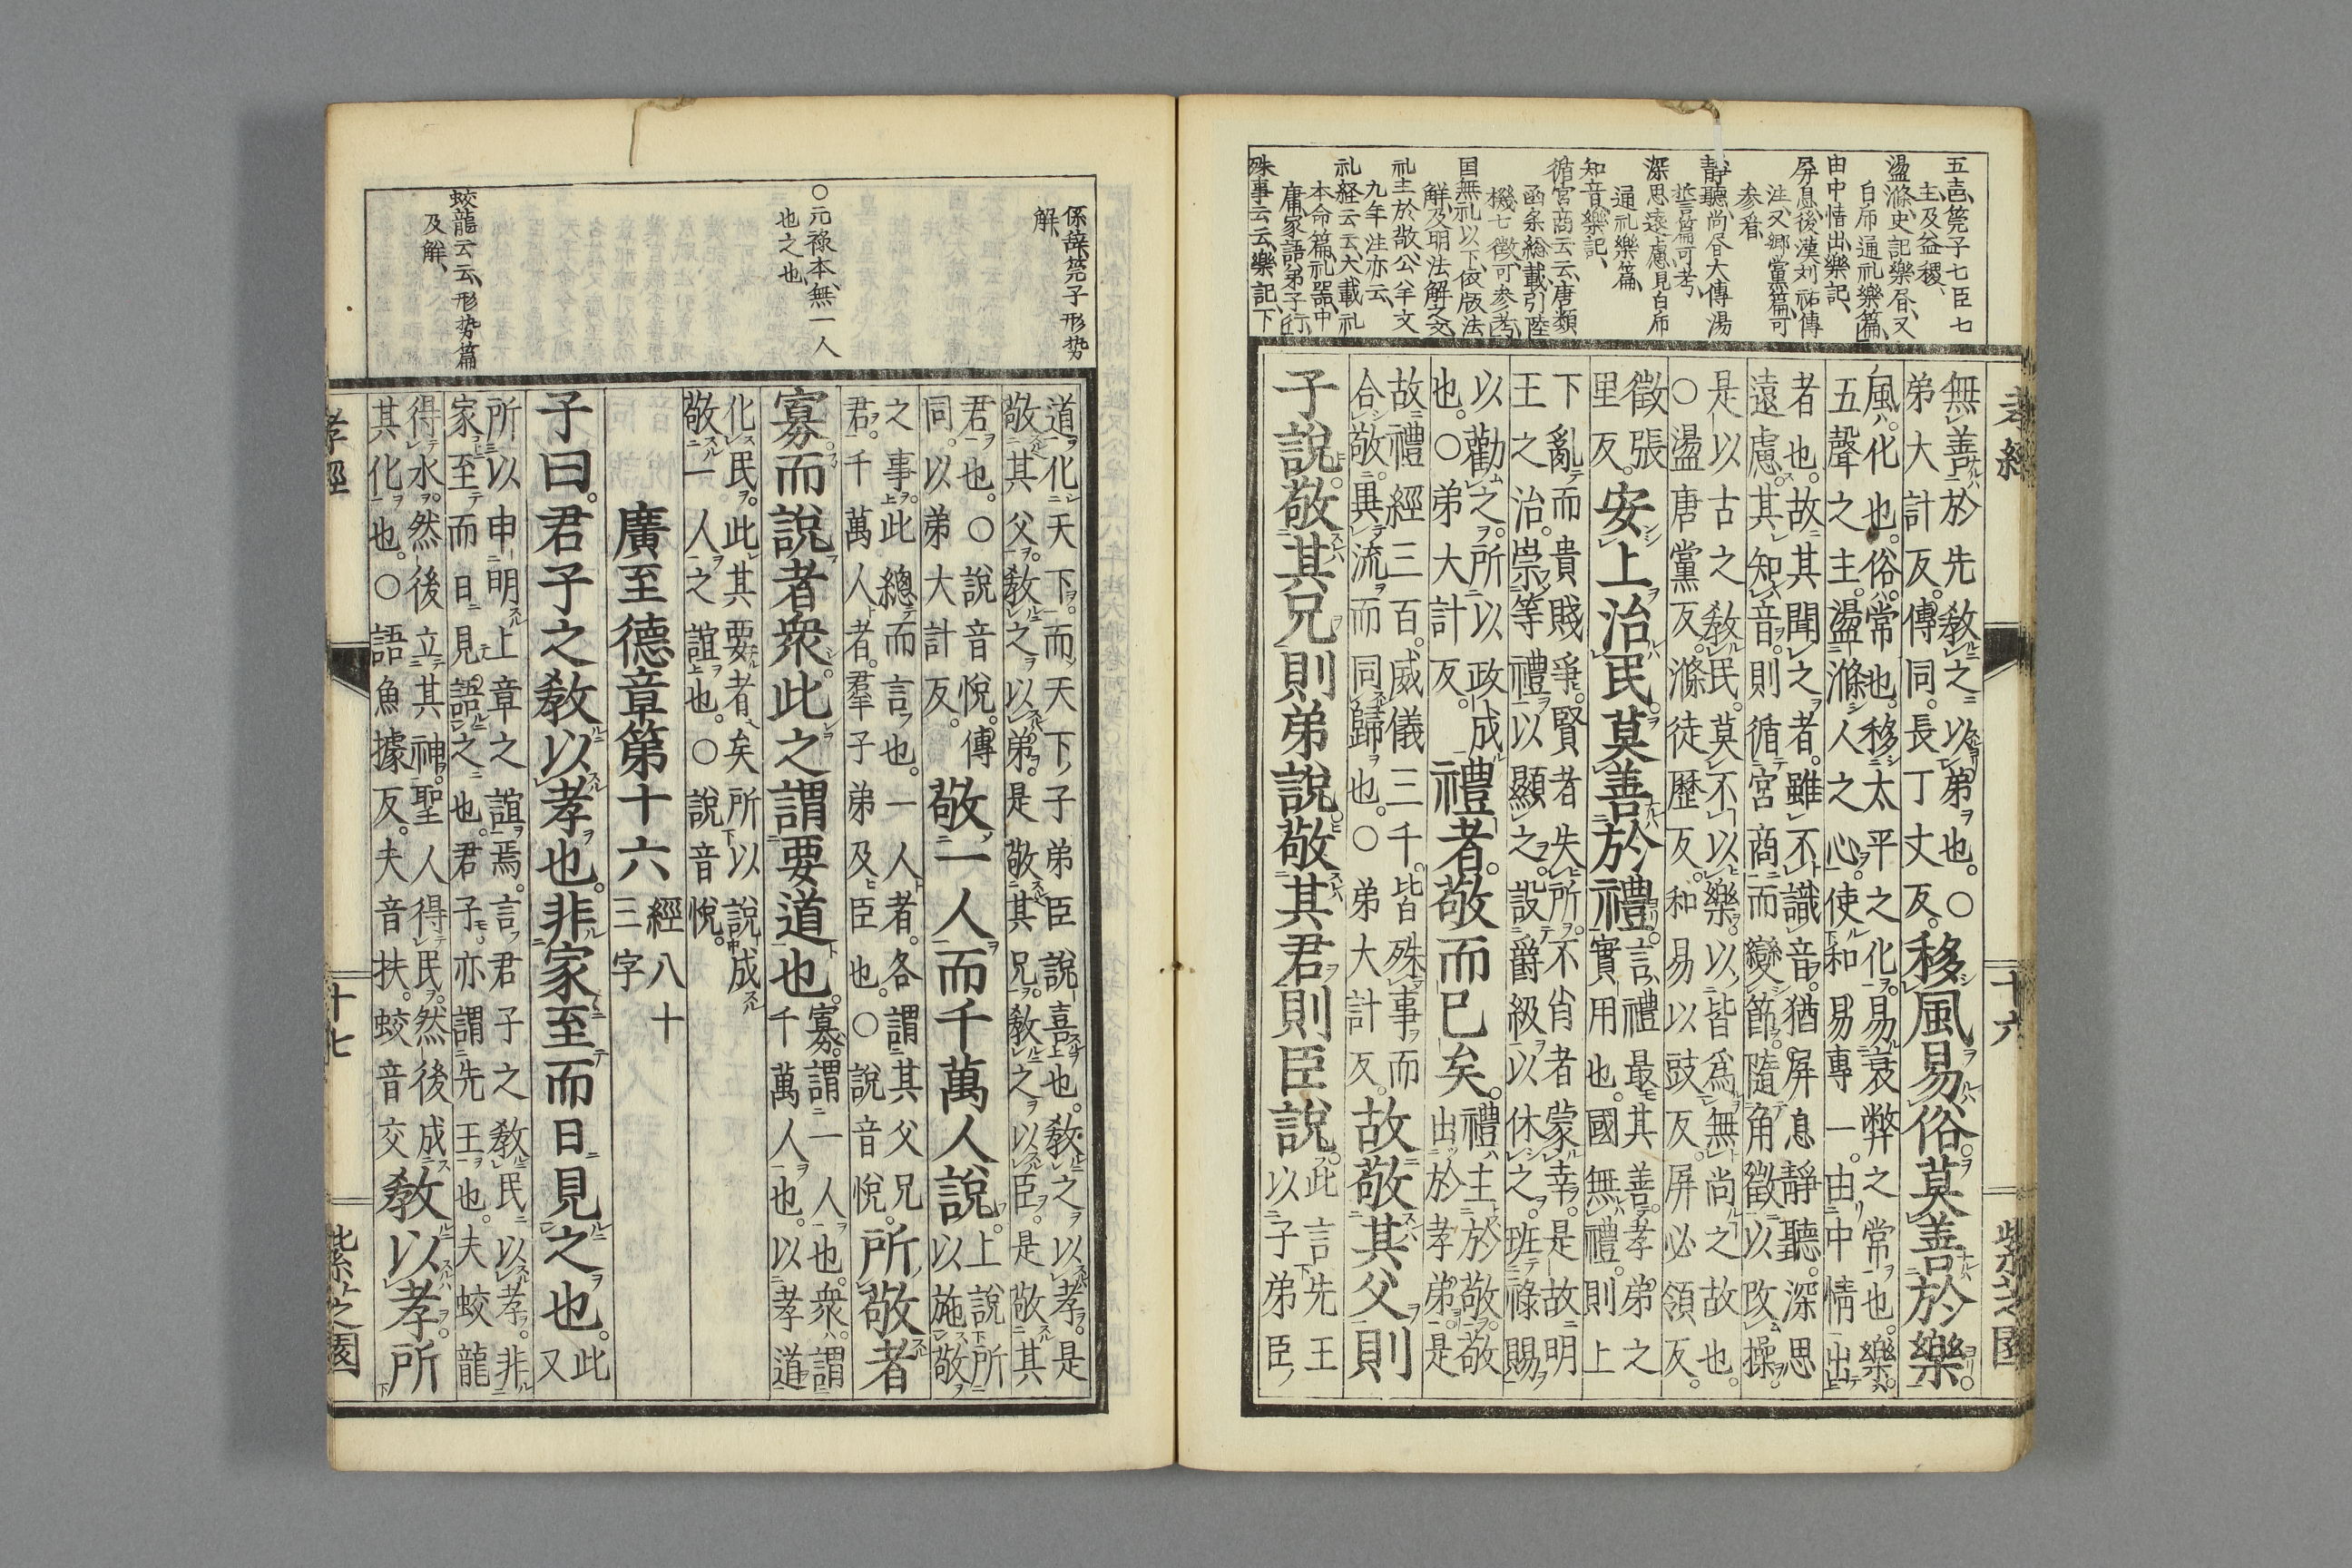 五㐫、筦子七臣七
主、及益稷、
盪滌、史記樂昼、又
白帍通礼樂篇、
由中情出、樂記、
屏息後漢刘祐傳
注、又鄉黨篇可
参看、
靜聽、尚昼大傳湯
誓篇可考、
深思遠慮見白帍
通礼樂篇、
知音、樂記、
循宮商云云、唐類
函条絵載引陸
機七徴可参考、
国無礼以下、依版法
解、及明法解之文、
礼主於敬、公羊文
九年注亦云、
礼経云云大戴礼
本命篇、礼器、中
庸、家語弟子行、
殊事云云、樂記下
孝經 十六 紫芝園
無善於先敎之以弟也。○
弟大計反。傳同。長丁丈反。
移風易俗。莫善於樂。
風。化也。俗。常也。移太平之化。易衰弊之常也。樂。
五聲之主。盪滌人之心。使和易專一。由中情出
者也。故其聞之者。雖不識音。猶屏息靜聽。深思
遠慮。其知音。則循宮商而變節。隨角徵以改操。
是以古之敎民。莫不以樂。以皆爲無尚之故也。
○盪唐黨反。滌徒歷反。和易以豉反。屏必領反。
徵張
里反。
安上治民。莫善於禮。
言禮最其善。孝弟之
實用也。國無禮。則上
下亂而貴賤爭。賢者失所。不肖者蒙幸。是故明
王之治。崇等禮以顯之。設爵級以休之。班祿賜
以勸之。所以政成
也。○弟大計反。
禮者。敬而已矣。
禮主於敬。敬
出於孝弟。是
故禮經三百。威儀三千。皆殊事而
合敬。異流而同歸也。○弟大計反。
故敬其父。則
子說。敬其兄。則弟說。敬其君。則臣說。
此言先王
以子弟臣
係辞、筦子形势
解、
○元祿本、無一人
也之也
蛟龍云云、形势篇
及解、
道化天下。而天下子弟臣說喜也。敎之以孝。是
敬其父。敎之以弟。是敬其兄。敎之以臣。是敬其
君也。○說音悅。傳
同。以弟大計反。
敬一人。而千萬人說。
上說所
以施敬
之事。此總而言也。一人者。各謂其父兄
君。千萬人者。羣子弟及臣也。○說音悅。
所敬者
寡。而說者衆。此之謂要道也。
寡。謂一人也。衆。謂
千萬人也。以孝道
化民。此其要者矣所以說成
敬一人之誼也。○說音悅。
廣至德章第十六
經八十
三字
子曰。君子之敎以孝也。非家至而日見之也。
此
又
所以申明上章之誼焉。言君子之敎民以孝。非
家至而日見語之也。君子亦謂先王也。夫蛟龍
得水。然後立其神。聖人得民。然後成
其化也。○語魚據反。夫音扶。蛟音交
敎以孝。所
孝經 十七 紫芝園